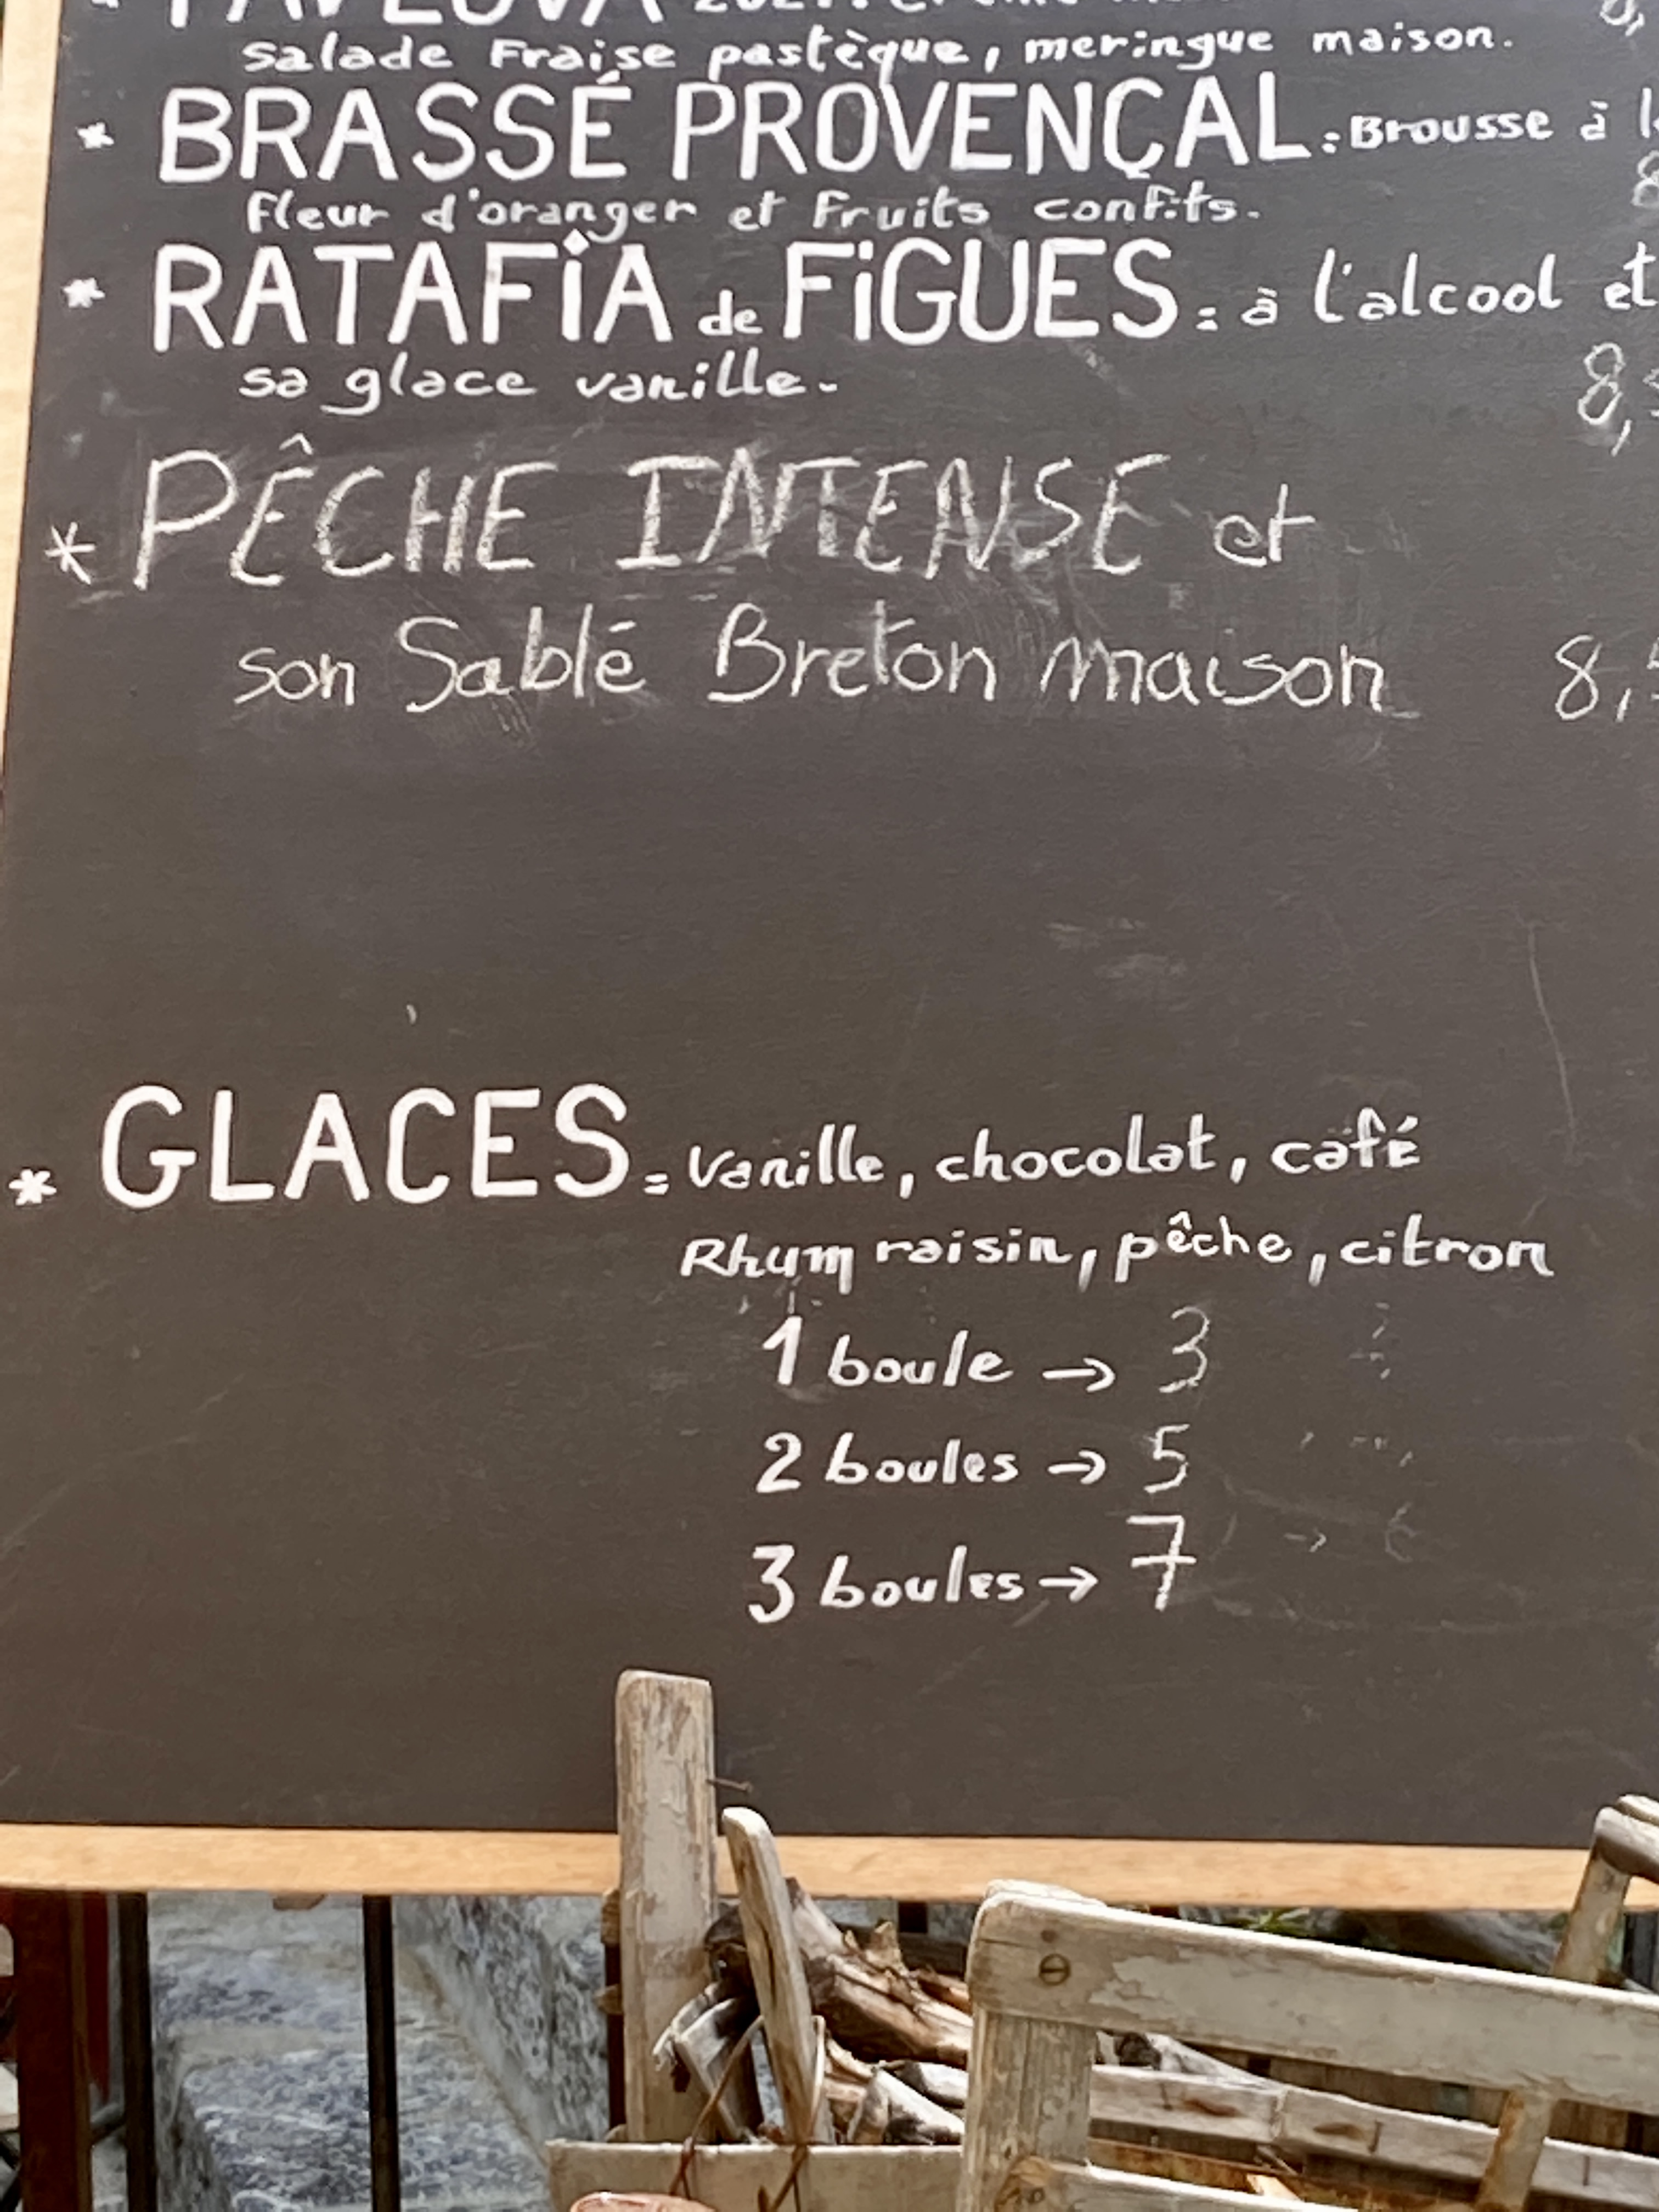 PAVLOVA
Salade Fraise pastèque, meringue maison.
* BRASSÉ PROVENÇAL : Brousse à
Fleur d'oranger et Fruits confits.
* RATAFIA de FiGUES : à l'alcool et
sa glace vanille. 8,
* PÊCHE INTENSE et
son Sablé Breton maison 8,
* GLACES : Vanille, chocolat, café
Rhum raisin, pêche, citron
1 boule → 3
2 boules → 5
3 boules → 7